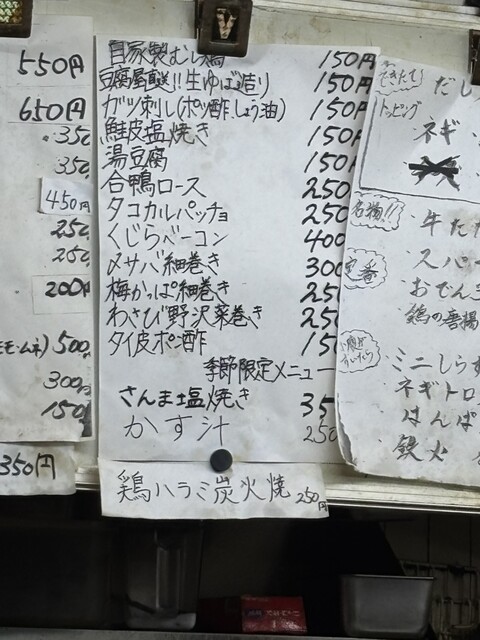 550円
650円
350
350
450円
250
250
200円
(モモ・ムネ) 500
300円
150
350円
自家製むし鶏 150円
豆腐屋直送!!生ゆば造り 150円
ガツ刺し(ポン酢、しょう油) 150円
鮭皮塩焼き 150円
湯豆腐 150
合鴨ロース 250
タコカルパッチョ 250
くじらベーコン 400
〆サバ細巻き 300
梅かっぱ細巻き 250
わさび野沢菜巻き 250
タイ皮ポン酢 150
季節限定メニュー
さんま塩焼き 35
かす汁 250
鶏ハラミ炭火焼 250円
できたて!
だし
トッピング
ネギ
名物!!
牛た
スパ
定番
おでん
鶏の唐揚
ミニしらす
ネギトロ
はんぱ
鉄火